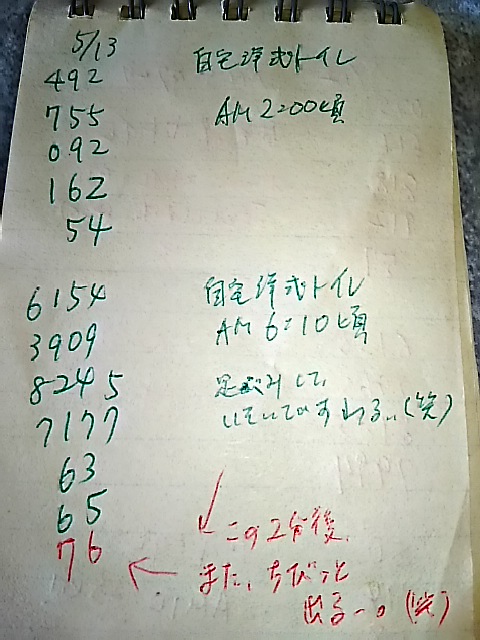 5/13
492 自宅洋式トイレ
755 AM 2:00頃
092
162
54
6154 自宅洋式トイレ
3909 AM 6:10頃
8245 足ぶみして、
7177 (笑)
63
65 この2分後、
76 ← また、ちびっと
出る〜。(笑)